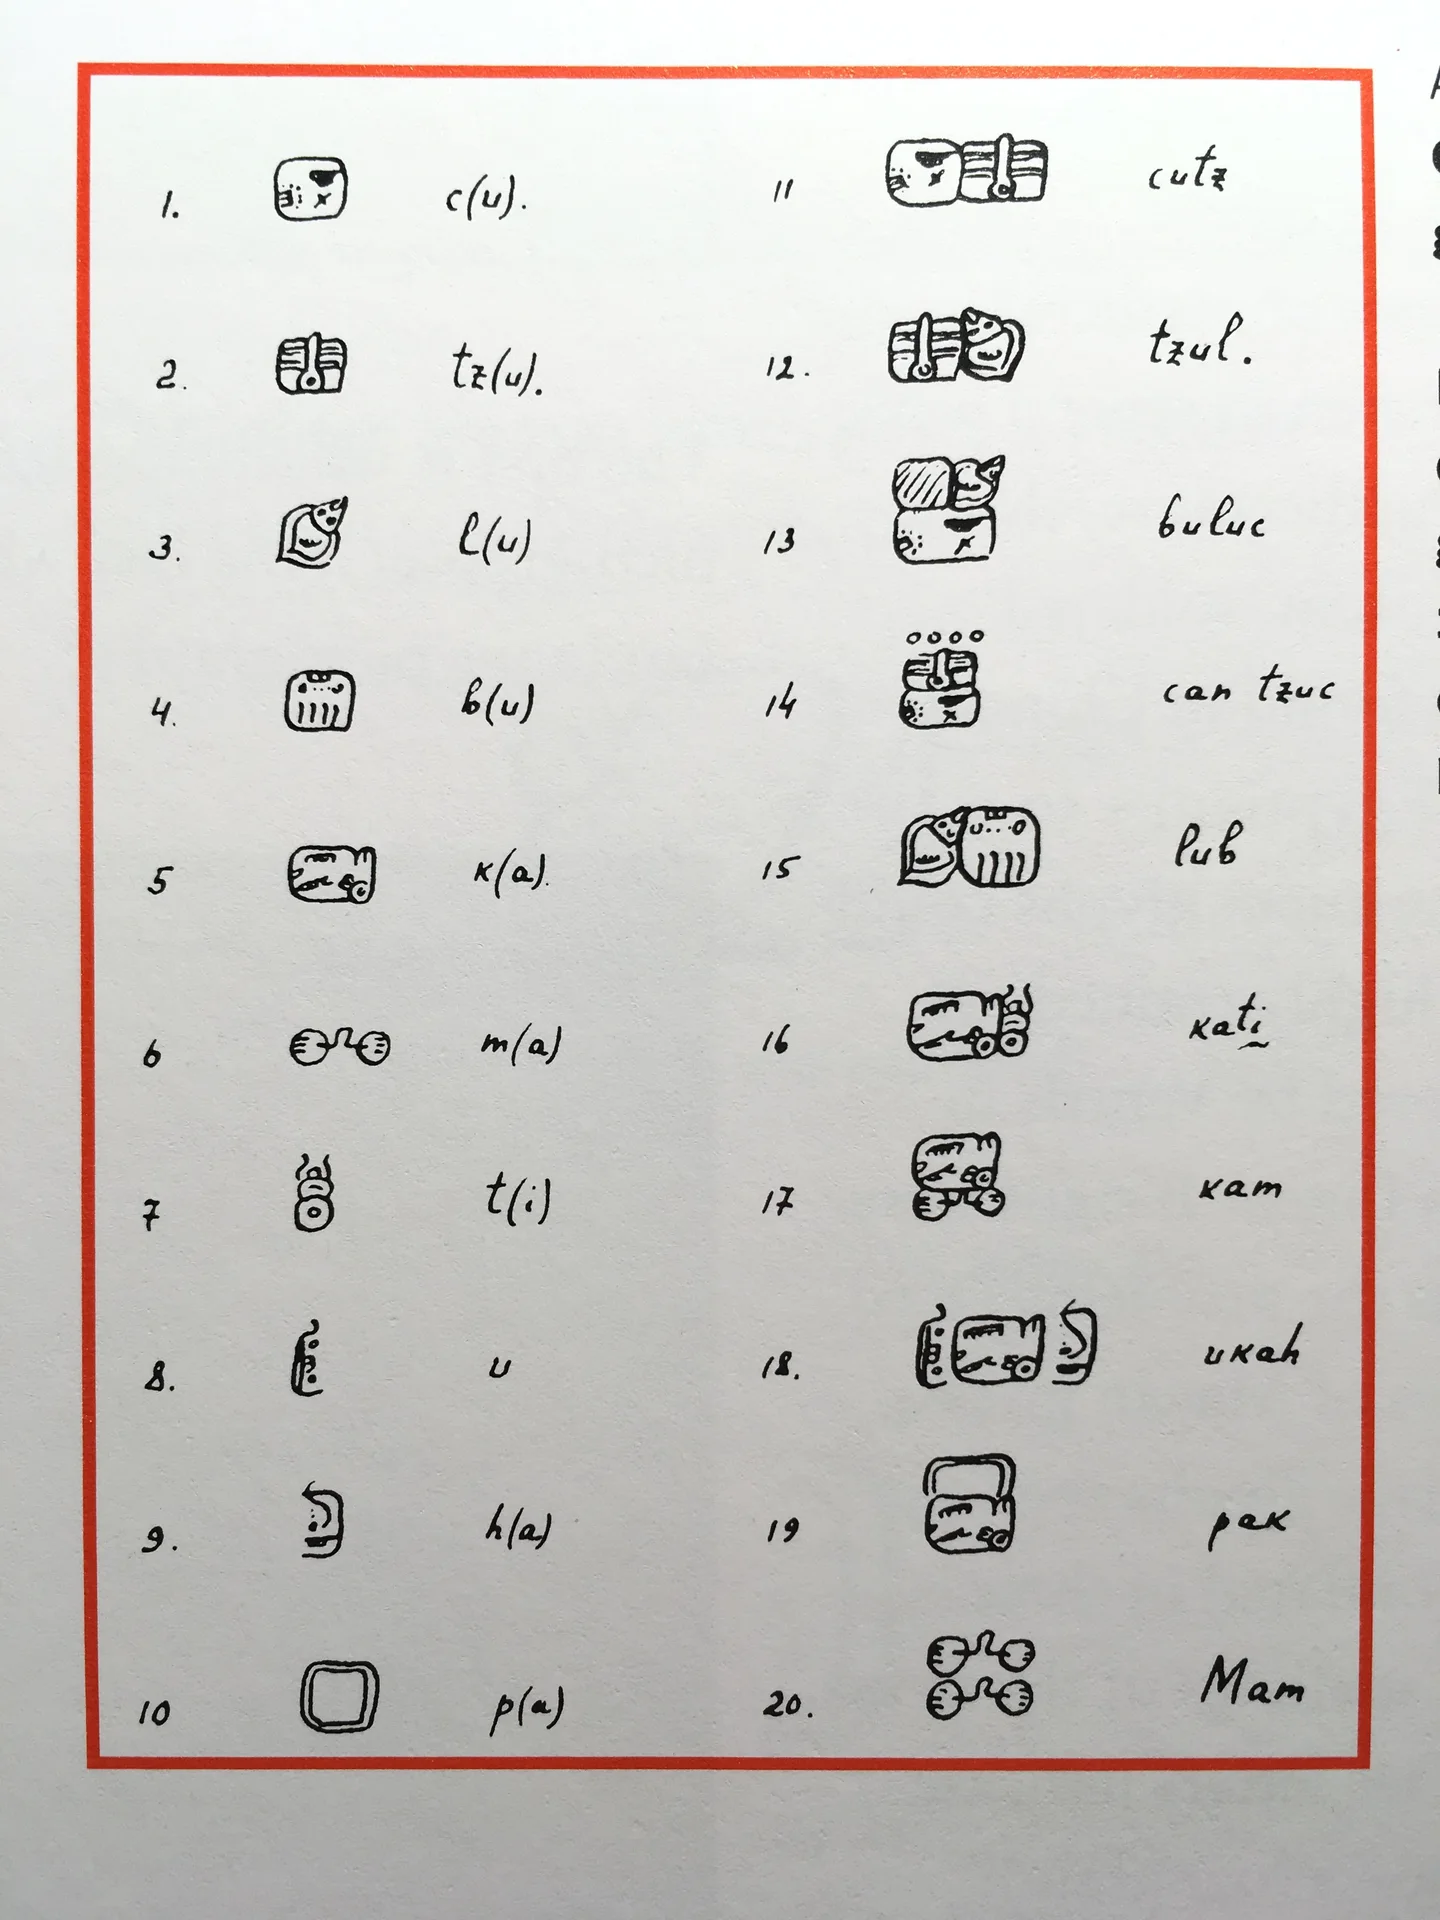 1. c(u).
2. tz(u).
3. l(u)
4. b(u)
5 к(a).
6 m(a)
7 t(i)
8. u
9. h(a)
10 p(a)
11 cutz
12. tzul.
13 buluc
14 can tzuc
15 lub
16 кati
17 кam
18. uкah
19 paк
20. Mam